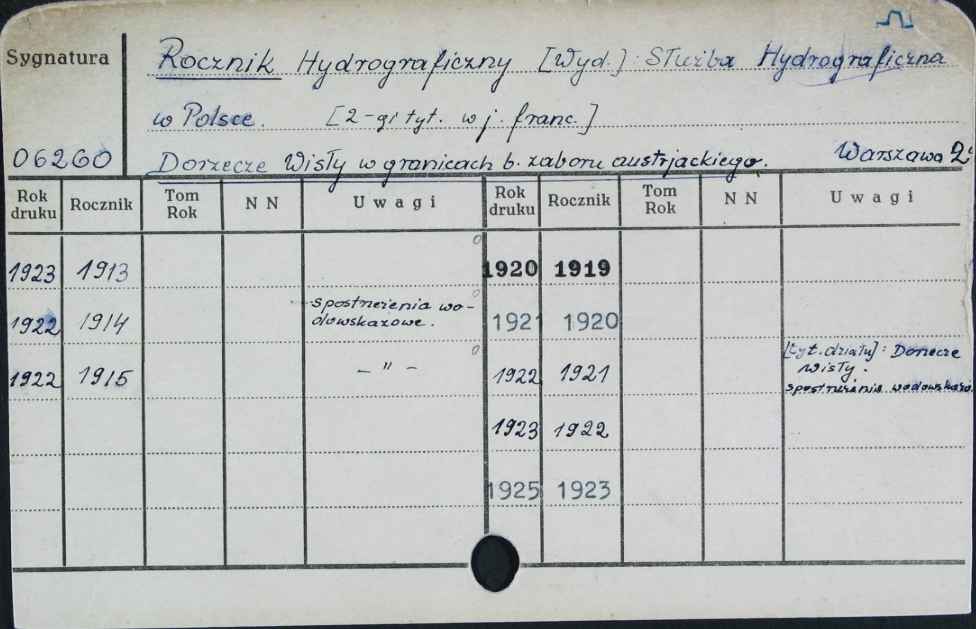 Sygnatura
Rocznik Hydrograficzny [Wyd.] Służba Hydrograficzna
w Polsce. [2-gi tyt. w j. franc.]
06260
Dorzecze Wisły w granicach b. zaboru austrjackiego. Warszawa 2°
Rok druku Rocznik Tom Rok N N Uwagi Rok druku Rocznik Tom Rok N N Uwagi
1923 1913 0 1920 1919
1922 1914 spostrzeżenia wo-
dowskazowe. 0 1921 1920
1922 1915 – " – 0 1922 1921 [tyt. działu]: Dorzecze
Wisły.
spostrzeżenia wodowskazo.
1923 1922
1925 1923